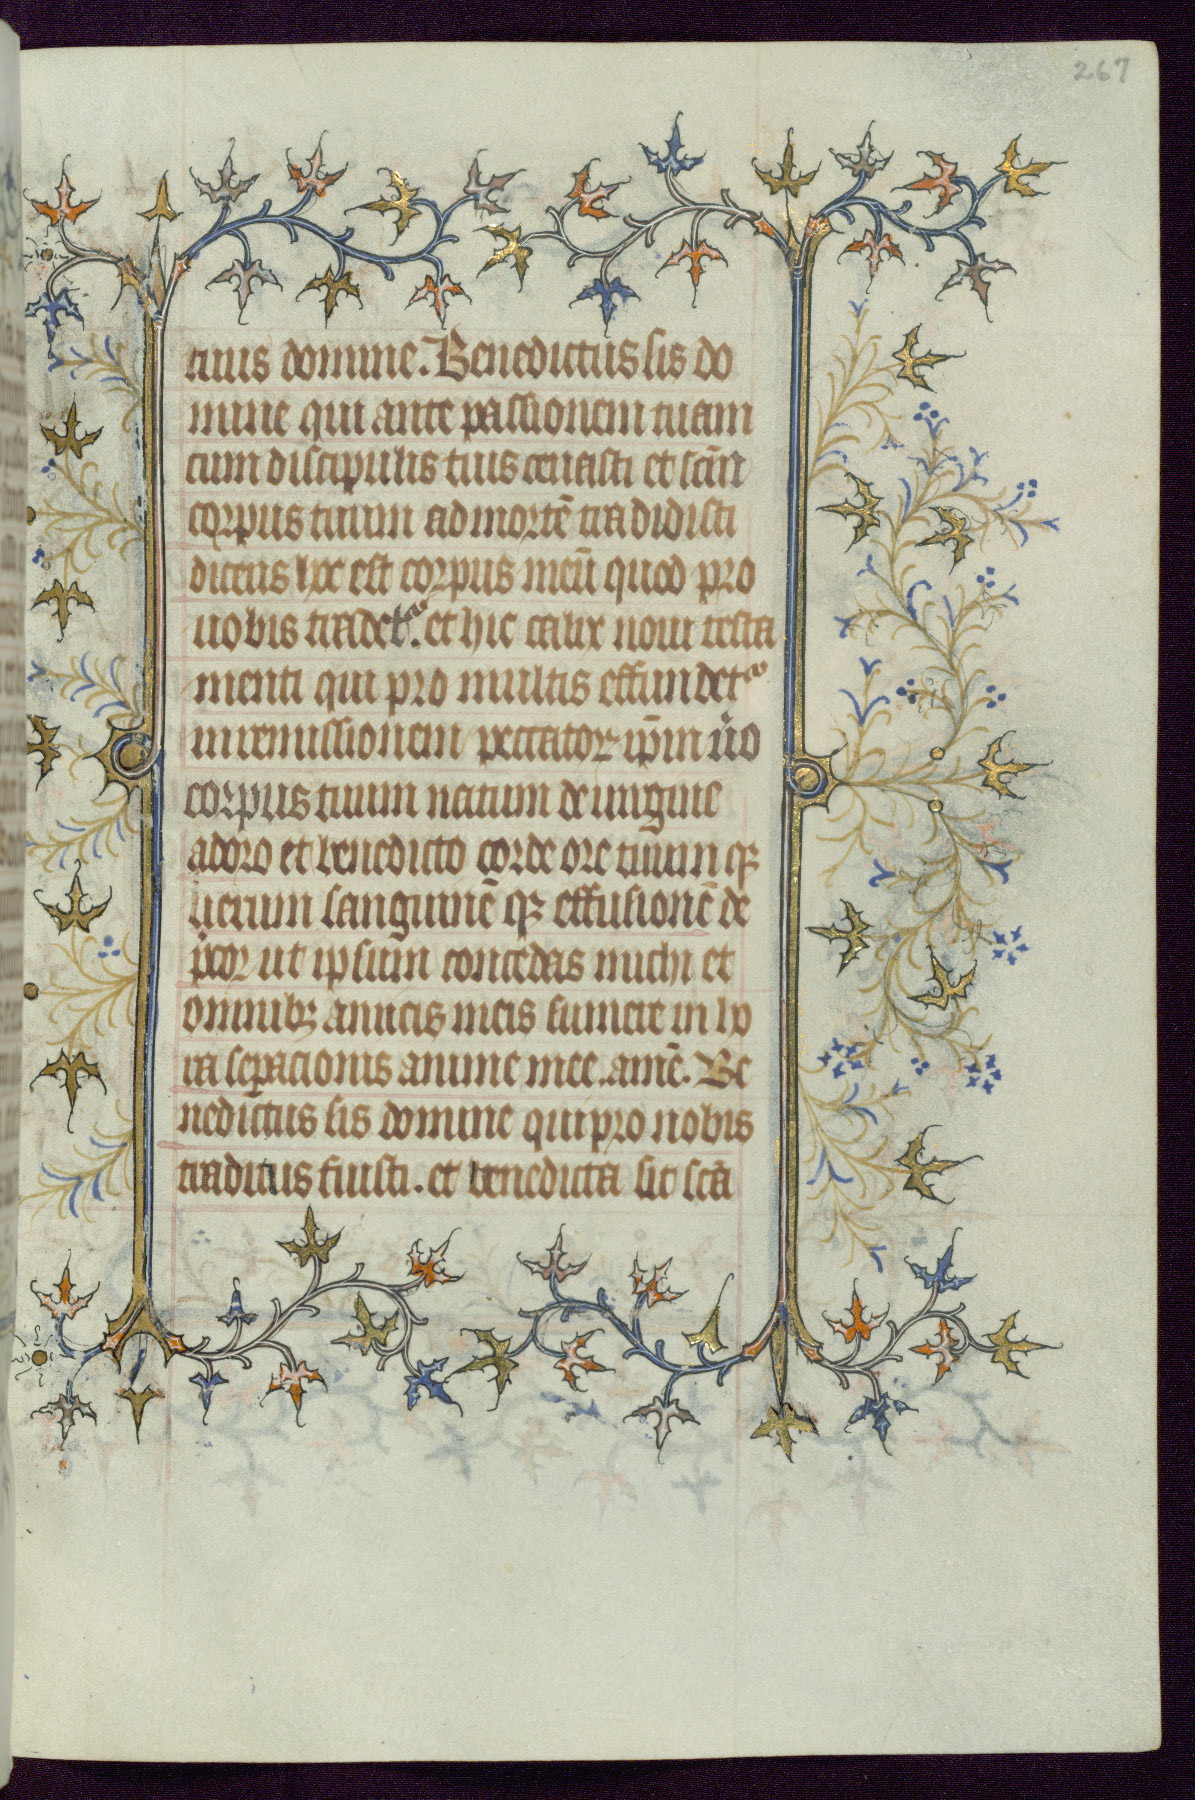 267
tuus domine. Benedictus sis do
mine qui ante passionem tuam
cum discipulis tuis cenasti et scm̄
corpus tuum ad mortē tradidisti
dicens hoc est corpus meū quod pro
uobis tradet᷑. et hic calix noui testa
menti qui pro multis effundet᷑
in remissionem peccatoꝝ ip̄m ůo
corpus tuum natum de uirgine
adoro et benedicto corde ore tuum qꝫ
uerum sanguinē qꝫ effusionē de
p̄cor ut ipsum concedas michi et
omnibꝫ amicis meis sumere in ho
ra sep̱acionis anime mee. amē. Be
nedictus sis domine qui pro nobis
traditus fuisti. et benedicta sit scā